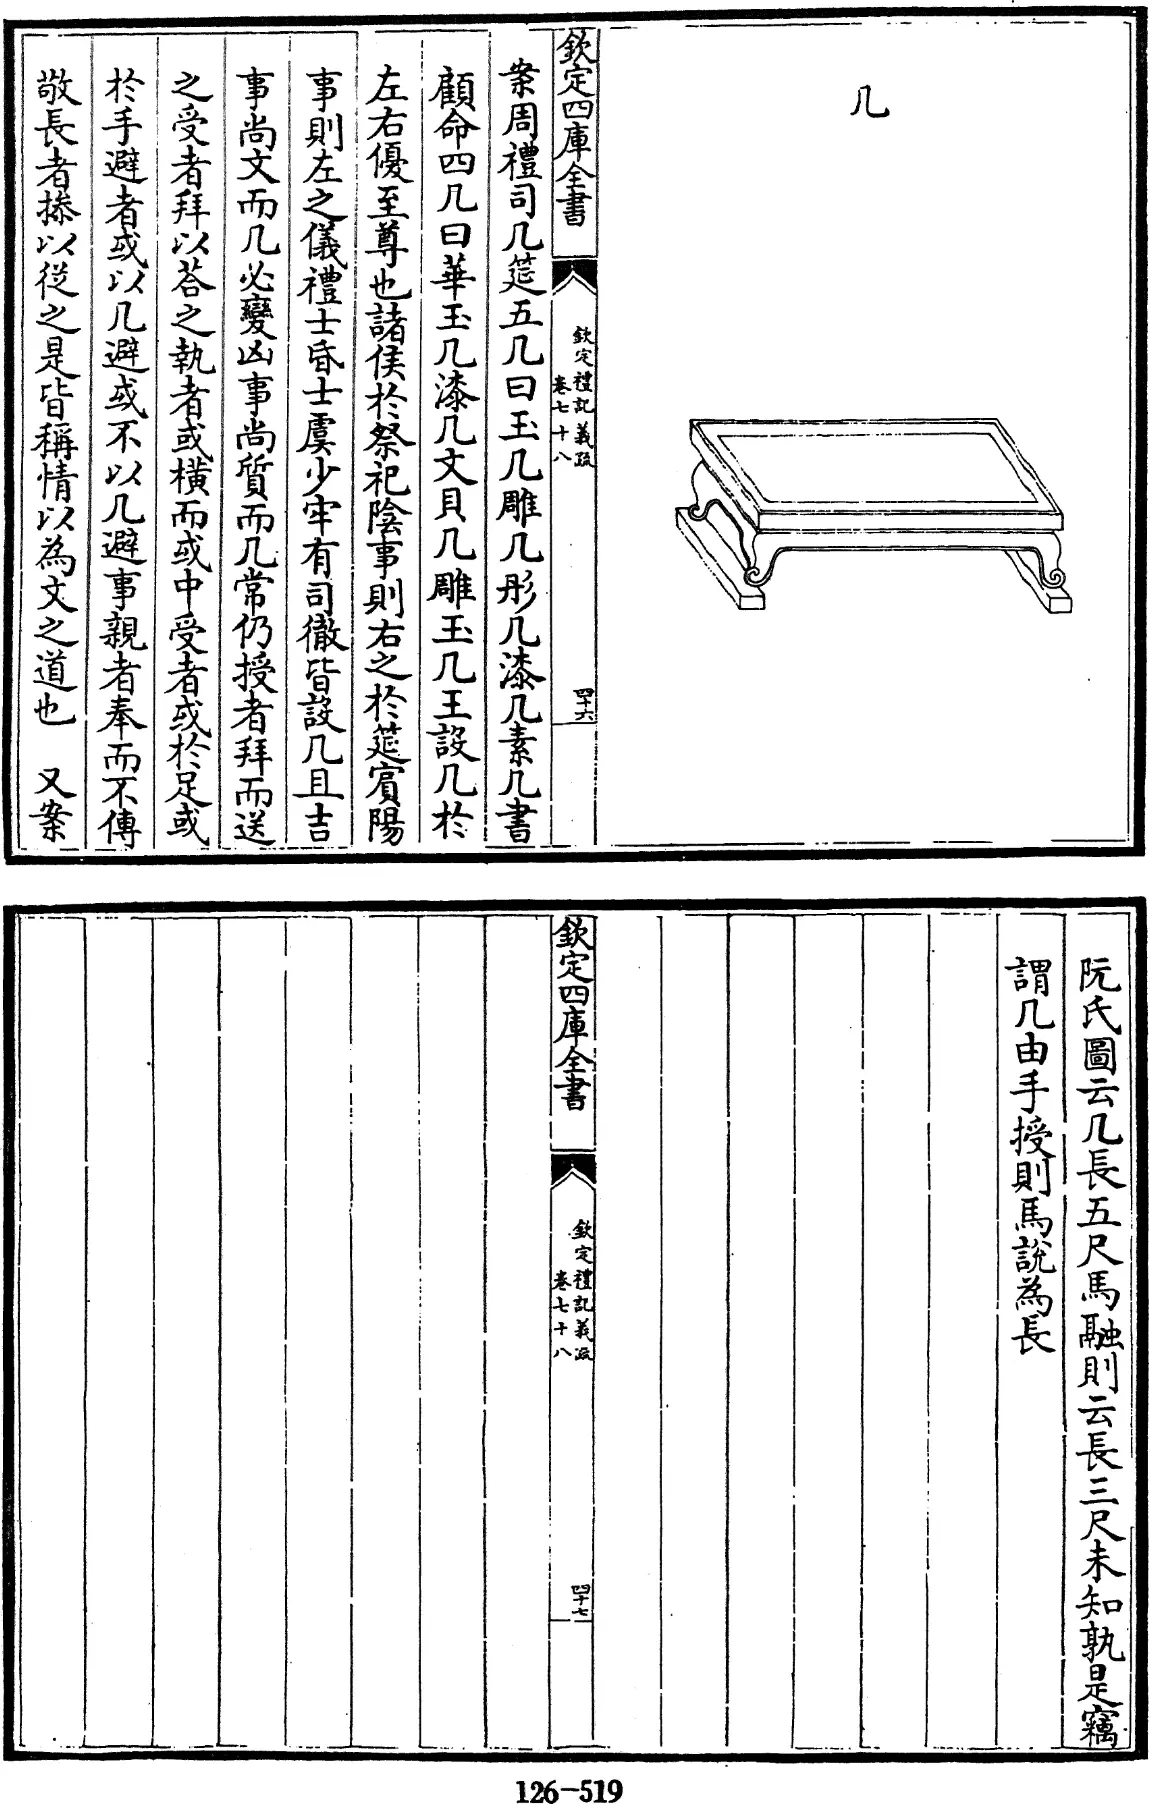 几
欽定四庫全書
欽定禮記義疏
卷七十八
四十六
案周禮司几筵五几曰玉几雕几彤几漆几素几書
顧命四几曰華玉几漆几文貝几雕玉几王設几於
左右優至尊也諸侯於祭祀陰事則右之於筵賓陽
事則左之儀禮士昏士虞少牢有司徹皆設几且吉
事尚文而几必變凶事尚質而几常仍授者拜而送
之受者拜以荅之執者或橫而或中受者或於足或
於手避者或以几避或不以几避事親者奉而不傳
敬長者㨾以從之是皆稱情以為文之道也 又案
阮氏圖云几長五尺馬融則云長三尺未知孰是竊
謂几由手授則馬說為長
欽定四庫全書
欽定禮記義疏
卷七十八
四十七
126-519